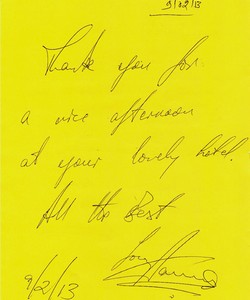 9/02/13
Thank you for
a nice afternoon
at your lovely hotel.
All the Best
9/2/13